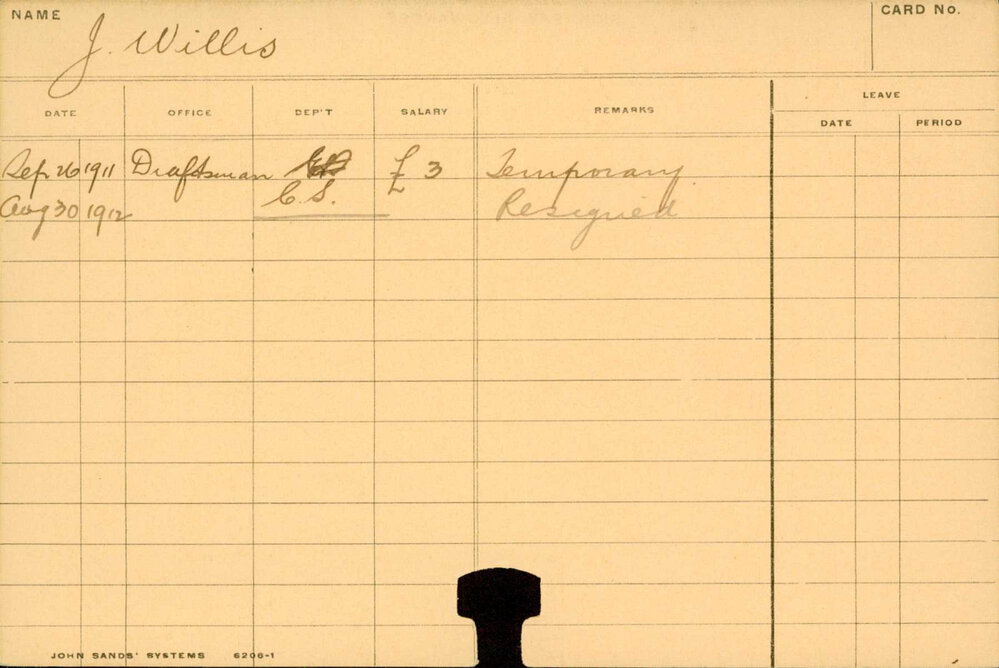 NAME J. Willis CARD No.
DATE OFFICE DEP'T SALARY REMARKS LEAVE
DATE PERIOD
Sep. 26 1911 Draftsman £ 3 Temporary.
Aug 30 1912 C.S. Resigned
JOHN SANDS' SYSTEMS 6206-1